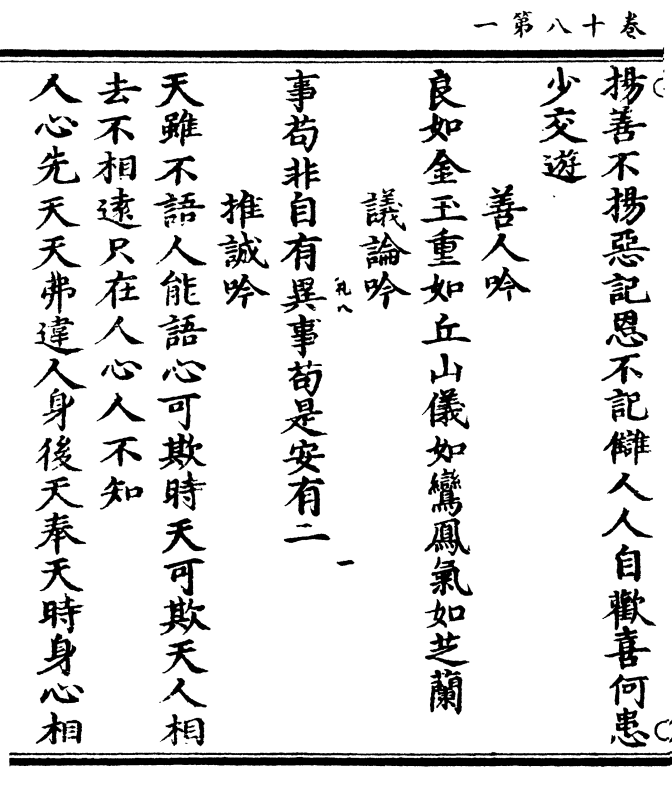 卷十八第一
揚善不揚惡記恩不記讎人人自歡喜何患
少交遊
善人吟
良如金玉重如丘山儀如鸞鳳氣如芝蘭
議論吟
事苟非自有異事苟是安有二
推誠吟
天雖不語人能語心可欺時天可欺天人相
去不相遠只在人心人不知
人心先天天弗違人身後天奉天時身心相